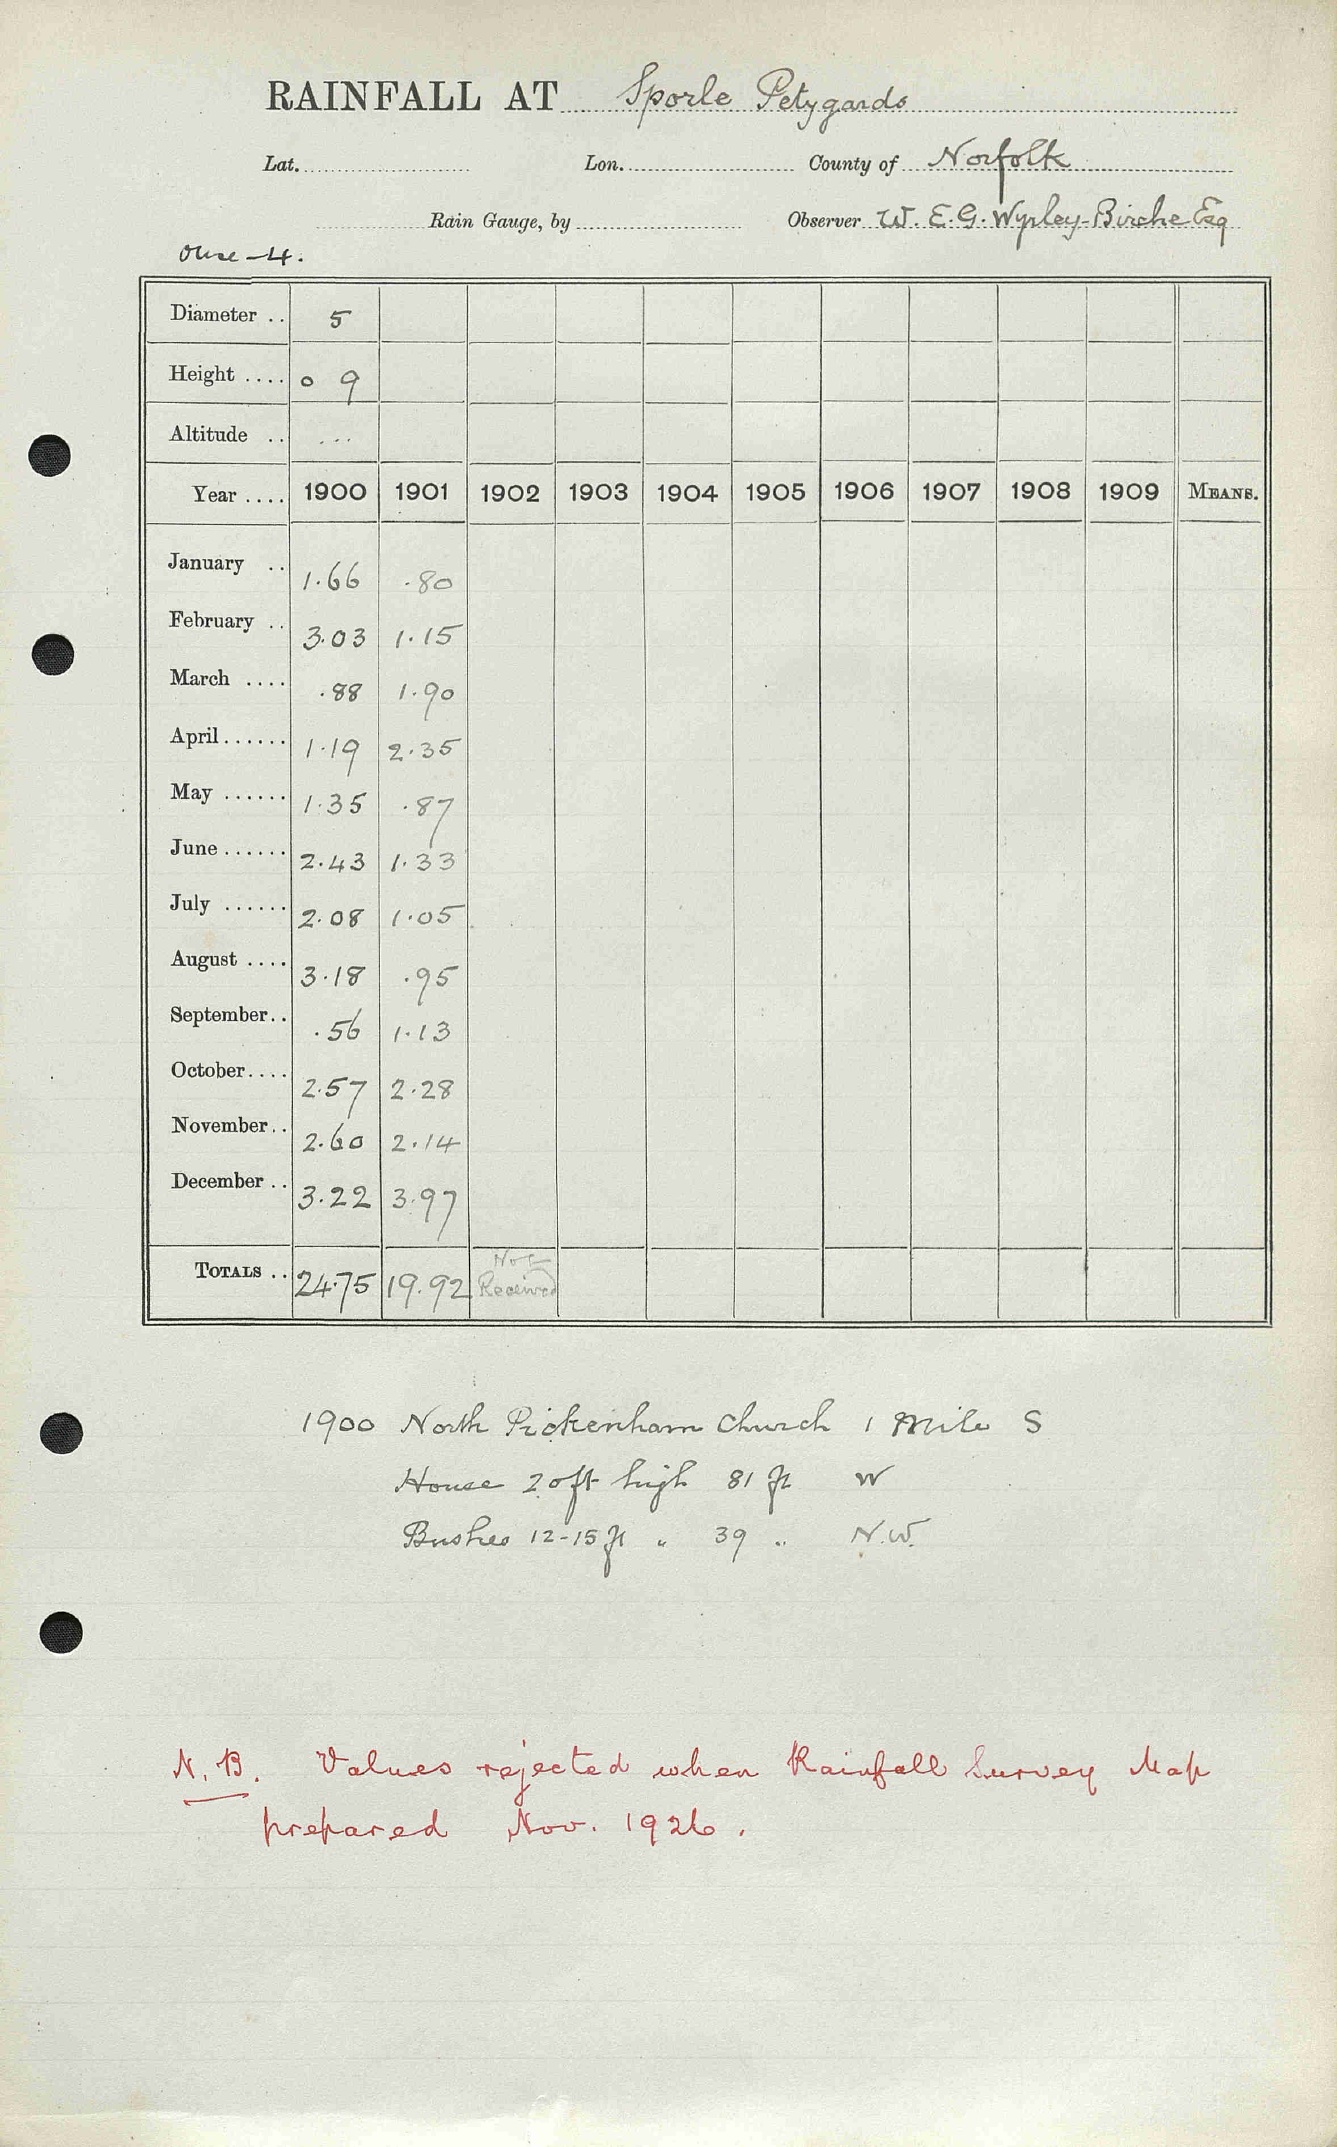 RAINFALL AT Sporle Petygards
Lat. Lon. County of Norfolk
Rain Gauge, by Observer W. E. G. Wyrley-Birche Esq
Ouse - 4.
Diameter .. 5
Height .... 0 9
Altitude .. ...
Year .... 1900 1901 1902 1903 1904 1905 1906 1907 1908 1909 MEANS.
January .. 1.66 .80
February .. 3.03 1.15
March .... .88 1.90
April...... 1.19 2.35
May ...... 1.35 .87
June...... 2.43 1.33
July ...... 2.08 1.05
August .... 3.18 .95
September.. .56 1.13
October.... 2.57 2.28
November.. 2.60 2.14
December .. 3.22 3.97
TOTALS .. 24.75 19.92 Not Received
1900 North Pickenham Church 1 Mile S
House 20ft high 81 ft W
Bushes 12-15 ft " 39 " N.W.
N.B. Values rejected when Rainfall Survey Map
prepared Nov. 1926.